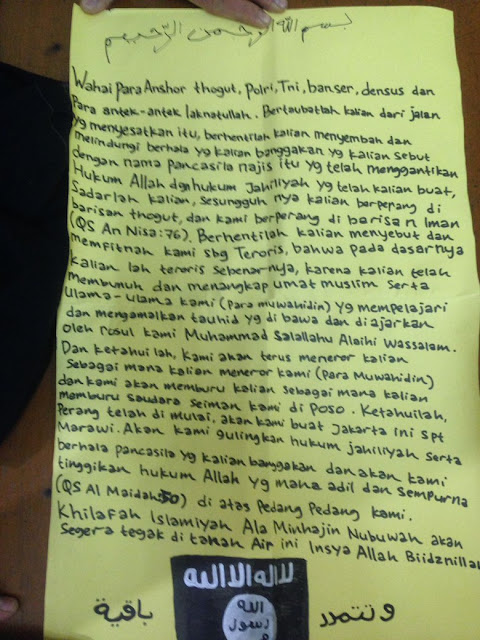 بسم الله الرحمن الرحيم
Wahai Para Anshor thogut, Polri, Tni, banser, densus dan
Para antek-antek laknatullah. Bertaubatlah kalian dari jalan
yg menyesatkan itu, berhentilah kalian menyembah dan
melindungi berhala yg kalian banggakan yg kalian sebut
dengan nama pancasila najis itu yg telah menggantikan
Hukum Allah dgn hukum Jahiliyah yg telah kalian buat,
Sadarlah kalian, Sesungguh nya kalian berperang di
barisan thogut, dan kami berperang di barisan Iman
(QS An Nisa:76). Berhentilah kalian menyebut dan
memfitnah kami sbg Teroris, bahwa pada dasarnya
Kalian lah teroris Sebenarnya, karena kalian telah
Membunuh dan menangkap umat muslim Serta
Ulama-Ulama kami (Para muwahidin) yg mempelajari
dan mengamalkan tauhid yg di bawa dan di ajarkan
oleh rosul kami Muhammad Salallahu Alaihi Wassalam.
Dan ketahui lah, Kami akan terus meneror kalian
Sebagai mana kalian meneror kami (Para Muwahidin)
dan kami akan memburu kalian sebagai mana kalian
memburu saudara Seiman kami di Poso. Ketahuilah,
Perang telah di mulai, akan kami buat Jakarta ini Spt
Marawi. Akan kami gulingkan hukum jahiliyah Serta
berhala pancasila yg kalian banggakan dan akan kami
tinggikan hukum Allah yg maha adil dan Sempurna
(QS Al Maidah:50) di atas Pedang Pedang kami.
Khilafah Islamiyah Ala Minhajin Nubuwah akan
Segera tegak di tanah Air ini Insya Allah Biidznillah
لا اله الا الله
الله
رسول
باقية وتتمدد